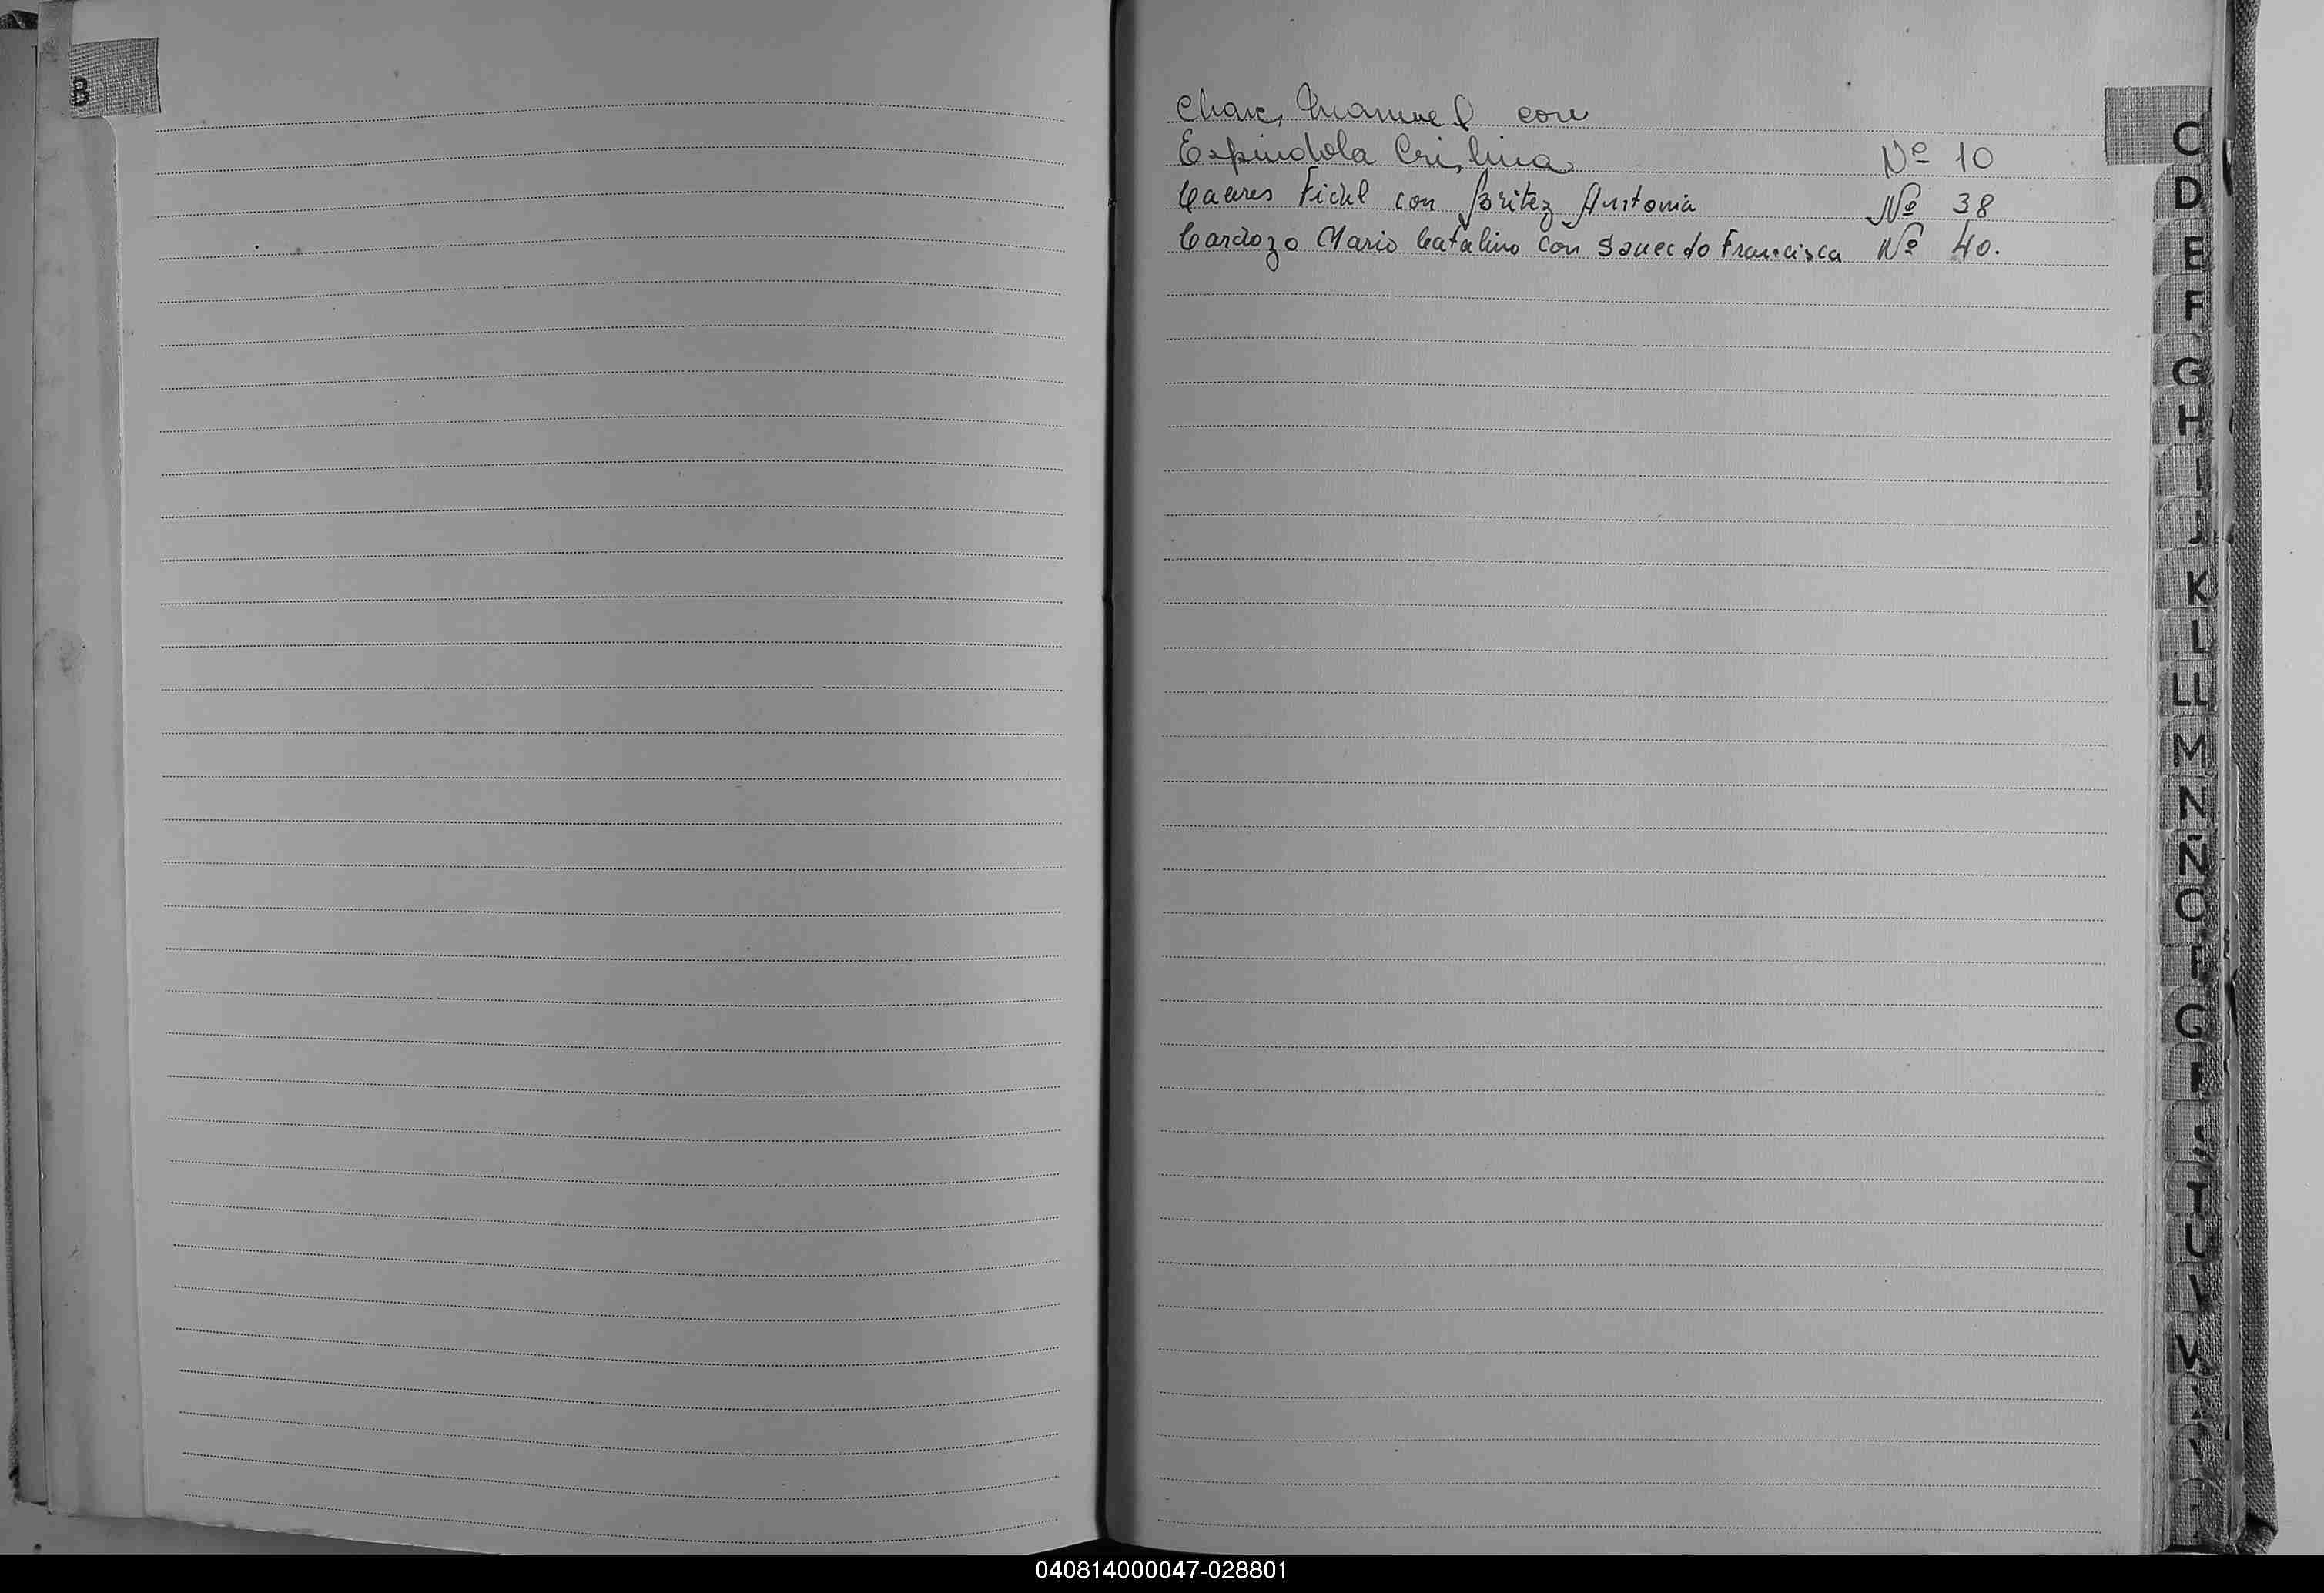 B
Chavez Manuel con
Espindola Cristina Nº 10
Caceres Fidel con Britez Antonia Nº 38
Cardozo Mario Catalino con Saucedo Francisca Nº 40.
C
D
E
F
G
H
I
J
K
L
LL
M
N
Ñ
O
P
Q
R
S
T
U
V
040814000047-028801